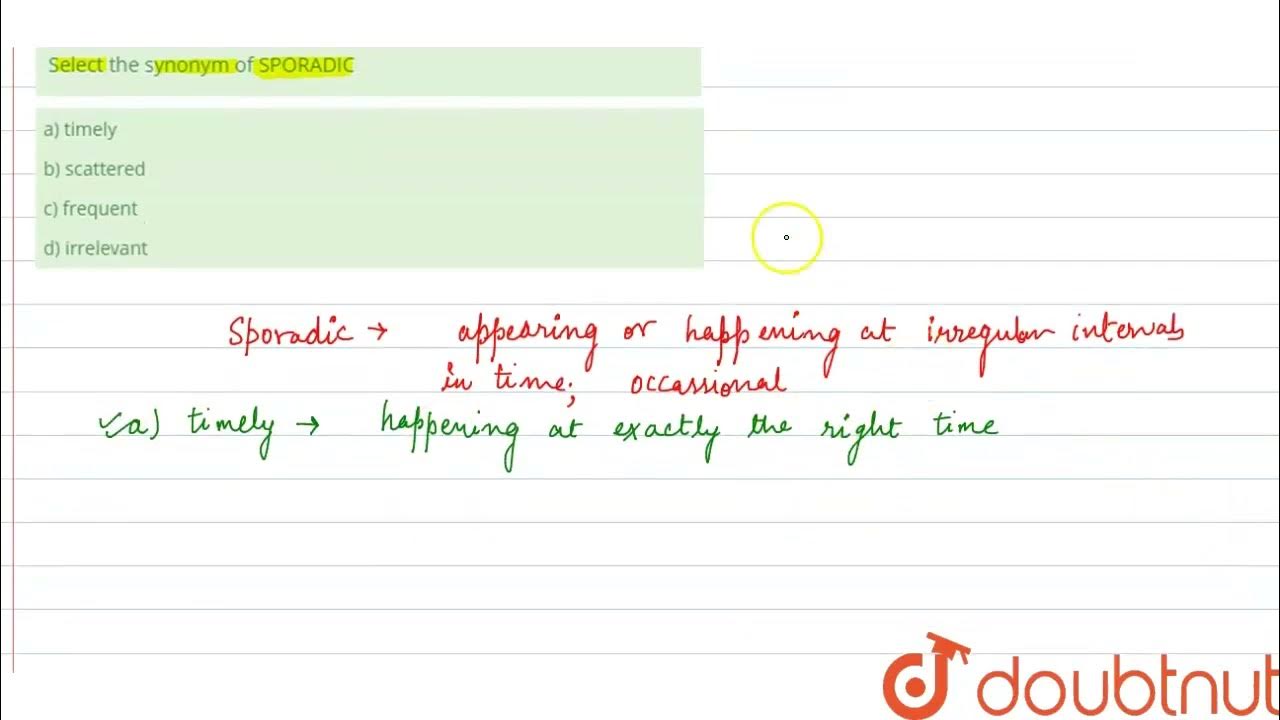 Select the synonym of SPORADIC
a) timely
b) scattered
c) frequent
d) irrelevant
Sporadic → appearing or happening at irregular intervals
in time; occassional
✓a) timely → happening at exactly the right time
doubtnut